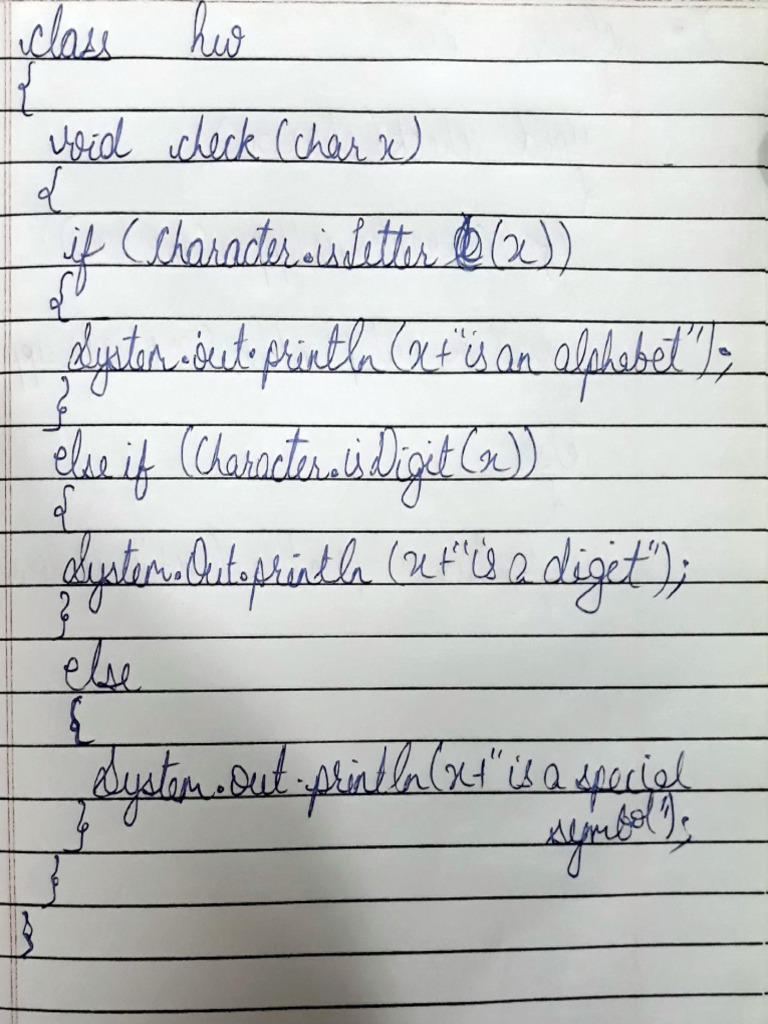 class hw
{
void check (char x)
{
if (Character.isLetter (x))
{
System.out.println (x+"is an alphabet");
}
else if (Character.isDigit (x))
{
System.Out.println (x+"is a digit");
}
else
{
System.out.println(x+" is a special
symbol");
}
}
}